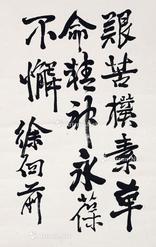 艰苦樸素革
命精神永葆
不懈
徐向前